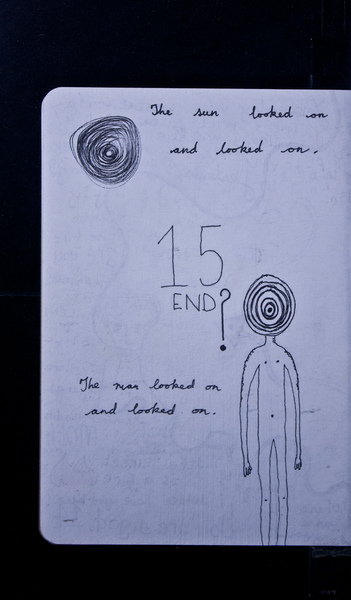 The sun looked on
and looked on.
15
END?
The man looked on
and looked on.